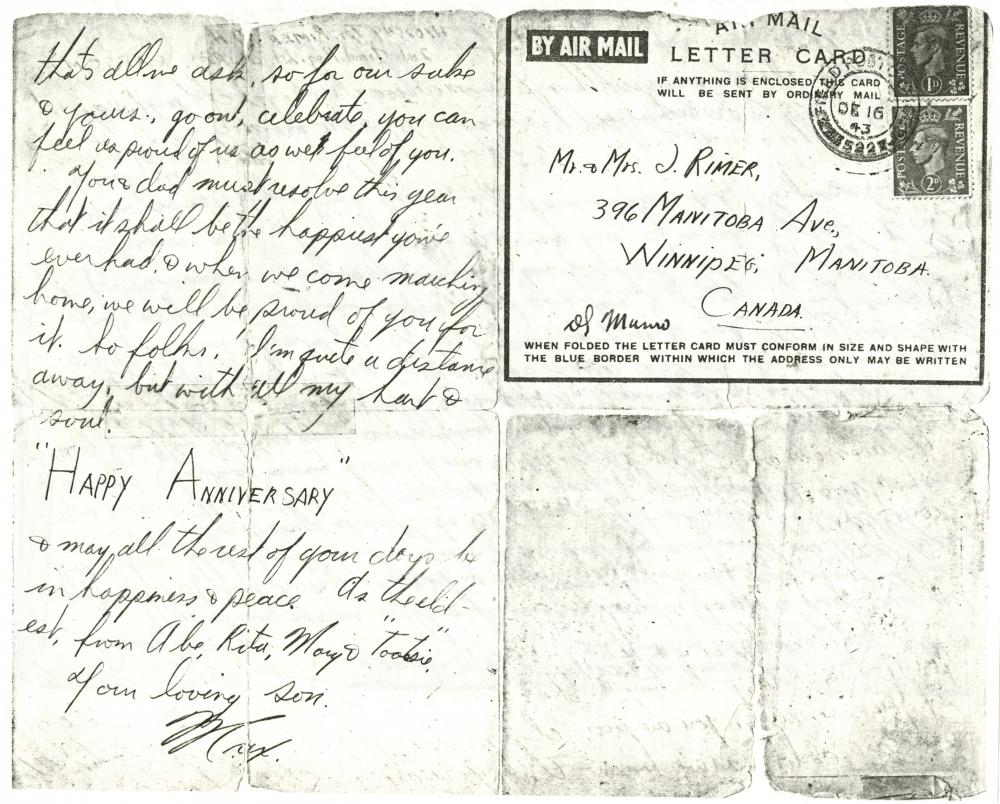 that's all we ask, so for our sake
& yours, go out, celebrate, you can
feel as proud of us as we feel of you.
You & dad must resolve this year
that it shall be the happiest you've
ever had, & when we come marching
home, we will be proud of you for
it. So folks, I'm quite a distance
away, but with all my heart &
soul.
"HAPPY ANNIVERSARY"
& may all the rest of your days be
in happiness & peace. As the eld-
est, from Abe, Rita, & "Tootsie",
Your loving son.
Max.
BY AIR MAIL
AIR MAIL
LETTER CARD
IF ANYTHING IS ENCLOSED THIS CARD
WILL BE SENT BY ORDINARY MAIL
POSTAGE REVENUE
1D
POSTAGE REVENUE
2D
DE 16
43
Mr. & Mrs. J. RIMER,
396 MANITOBA AVE,
WINNIPEG, MANITOBA.
CANADA.
WHEN FOLDED THE LETTER CARD MUST CONFORM IN SIZE AND SHAPE WITH
THE BLUE BORDER WITHIN WHICH THE ADDRESS ONLY MAY BE WRITTEN